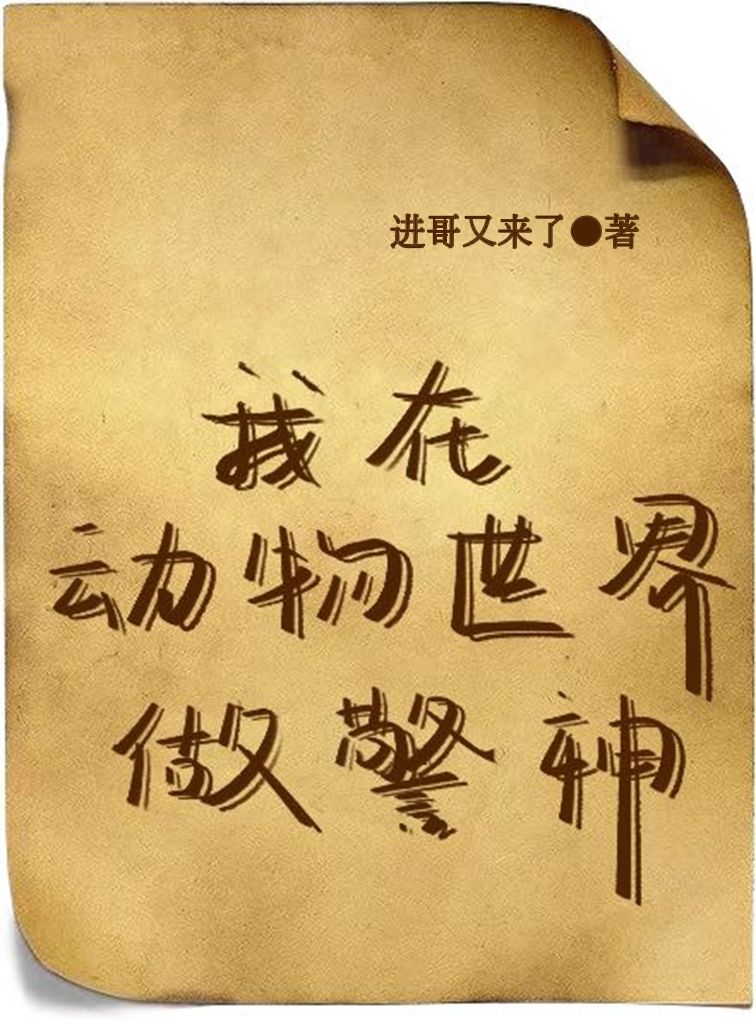 进哥又来了●著
我在
动物世界
做警神